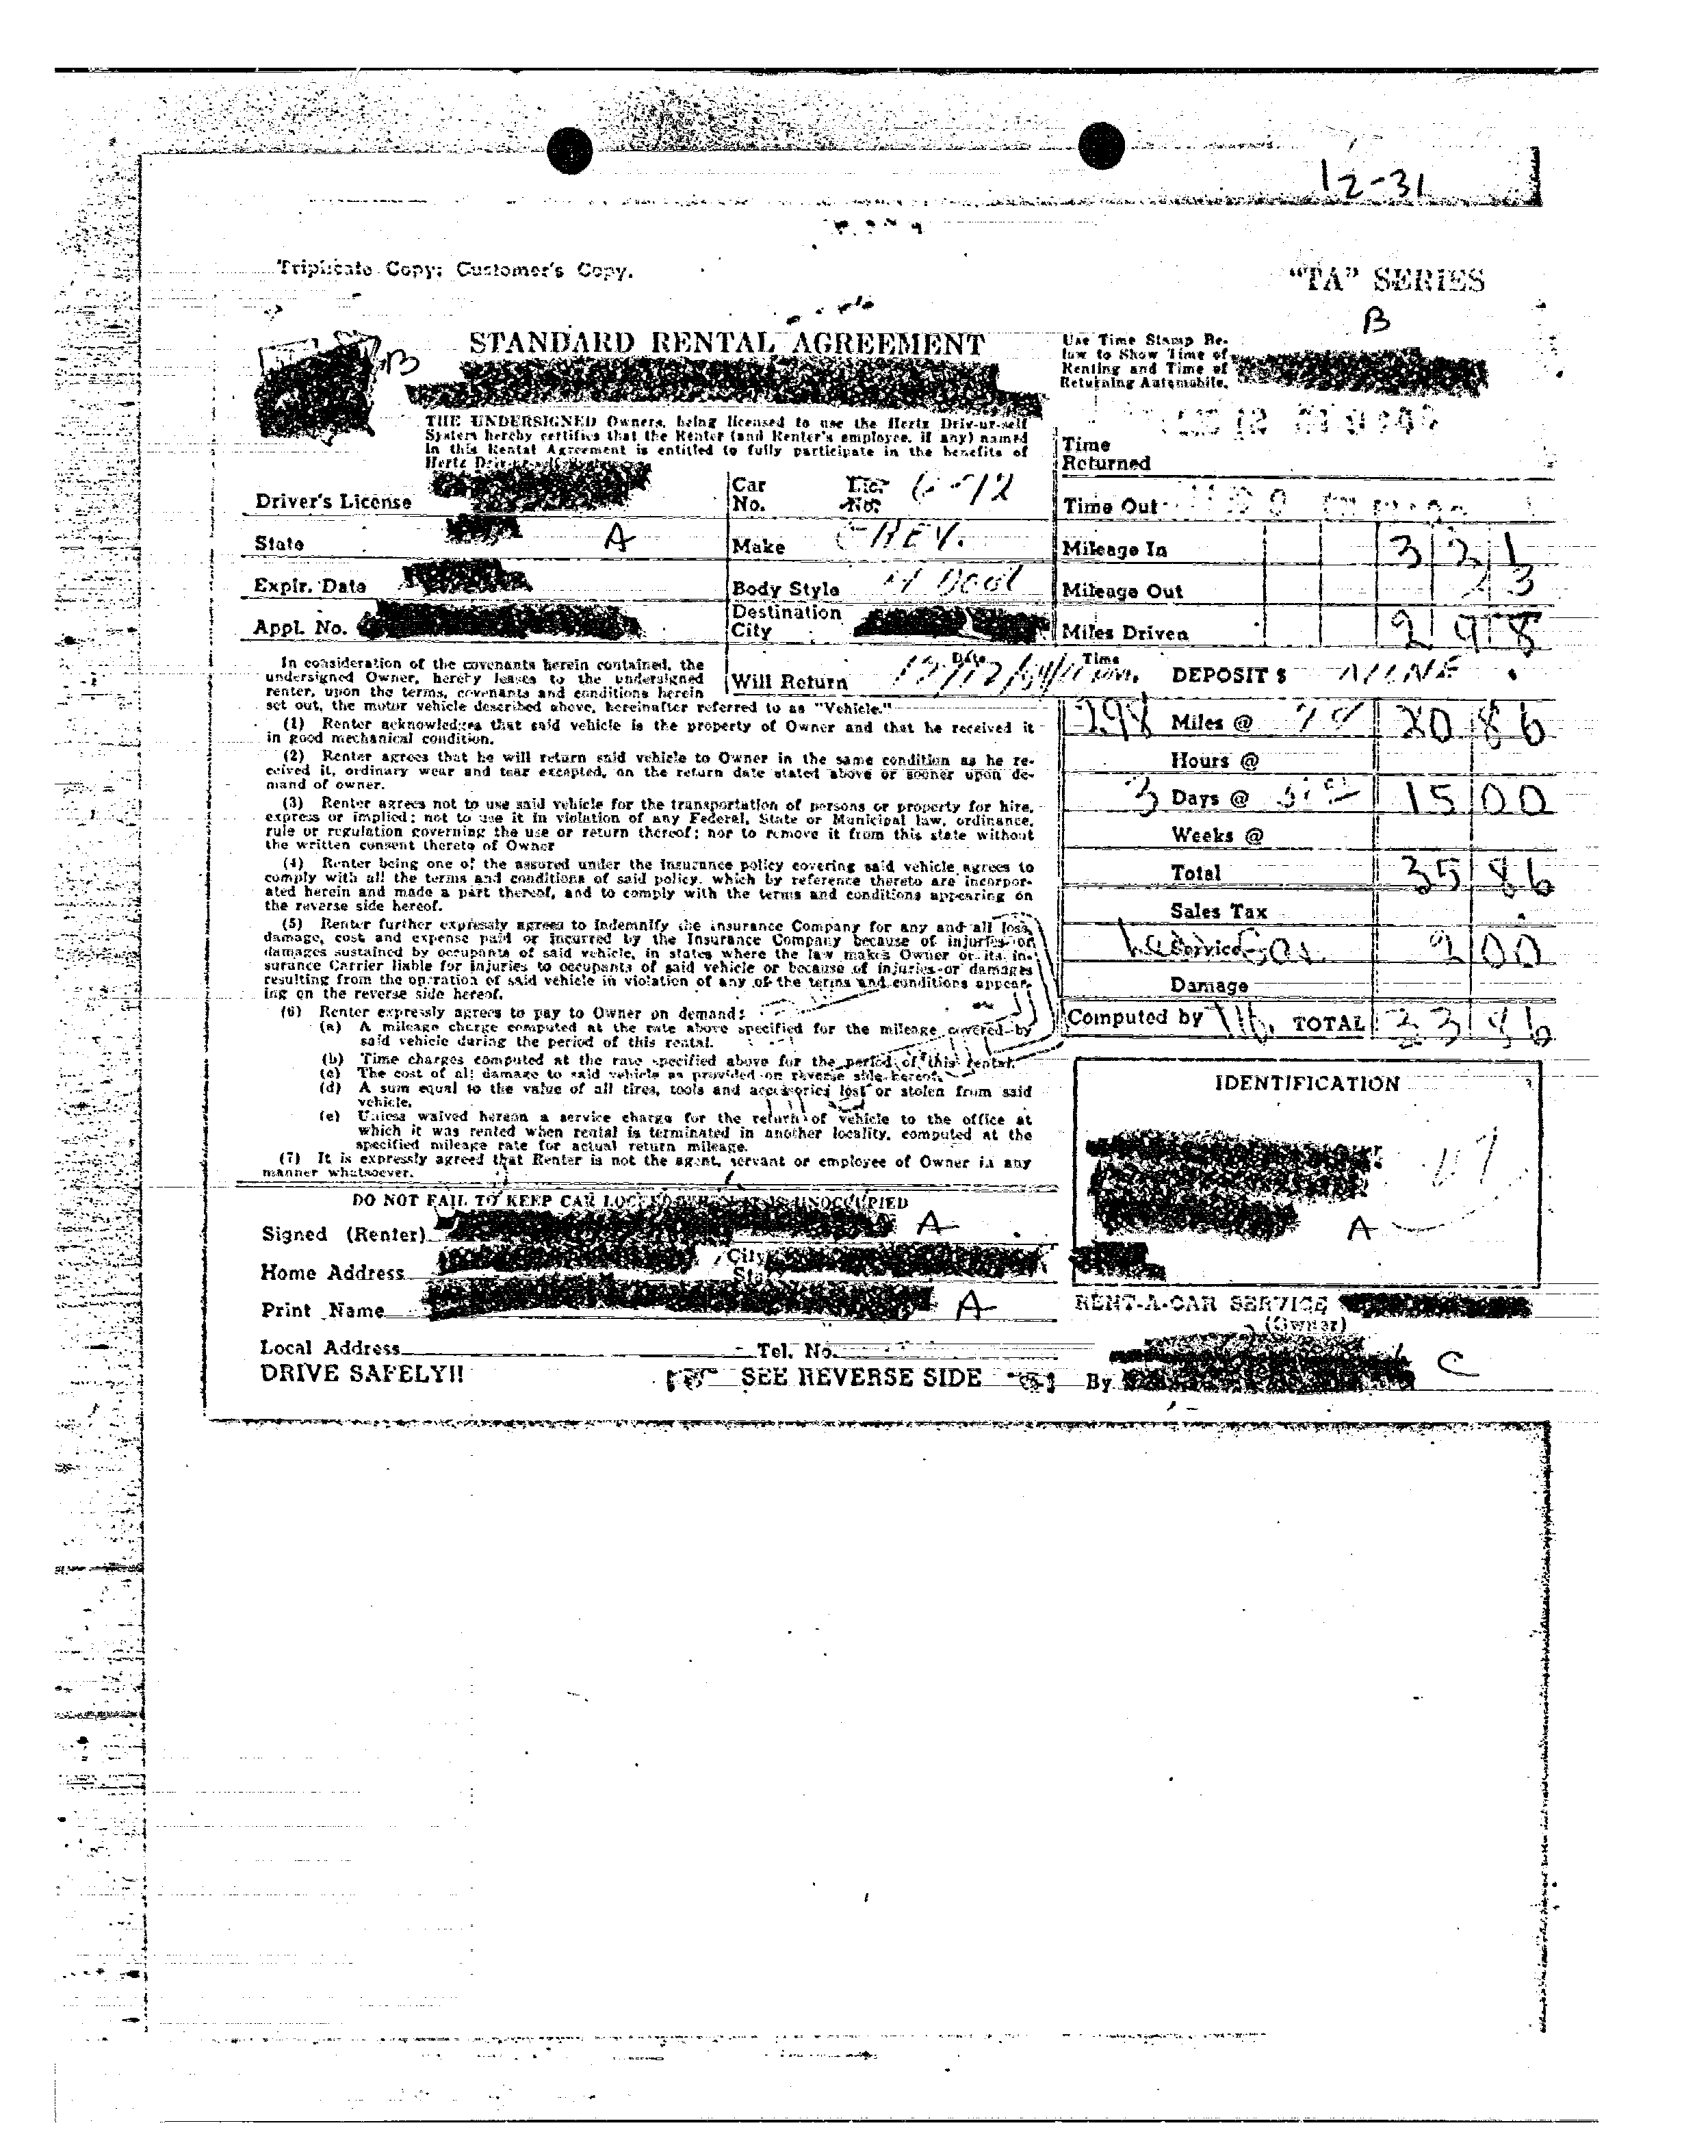 12-31
Triplicate Copy: Customer's Copy.
"TA" SERIES
B
STANDARD RENTAL AGREEMENT
B
Use Time Stamp Be-
low to Show Time of
Renting and Time of
Returning Automobile.
THE UNDERSIGNED Owners, being licensed to use the Hertz Driv-ur-self
System hereby certifies that the Renter (and Renter's employee, if any) named
in this Rental Agreement is entitled to fully participate in the benefits of
Hertz Driv-ur-self System
Time
Returned
Driver's License
Car
No.
Lic.
No.
Time Out
State A
Make CHEV.
Mileage In 321
Expir. Date
Body Style
Mileage Out 23
Appl. No.
Destination
City
Miles Driven 298
Will Return
Date
Time
DEPOSIT $
In consideration of the covenants herein contained, the
undersigned Owner, hereby leases to the undersigned
renter, upon the terms, covenants and conditions herein
set out, the motor vehicle described above, hereinafter referred to as "Vehicle."
(1) Renter acknowledges that said vehicle is the property of Owner and that he received it
in good mechanical condition.
(2) Renter agrees that he will return said vehicle to Owner in the same condition as he re-
ceived it, ordinary wear and tear excepted, on the return date stated above or sooner upon de-
mand of owner.
(3) Renter agrees not to use said vehicle for the transportation of persons or property for hire,
express or implied; not to use it in violation of any Federal, State or Municipal law, ordinance,
rule or regulation governing the use or return thereof; nor to remove it from this state without
the written consent thereto of Owner
(4) Renter being one of the assured under the insurance policy covering said vehicle agrees to
comply with all the terms and conditions of said policy, which by reference thereto are incorpor-
ated herein and made a part thereof, and to comply with the terms and conditions appearing on
the reverse side hereof.
(5) Renter further expressly agrees to indemnify the insurance Company for any and all loss,
damage, cost and expense paid or incurred by the Insurance Company because of injuries or
damages sustained by occupants of said vehicle, in states where the law makes Owner or its in-
surance Carrier liable for injuries to occupants of said vehicle or because of injuries or damages
resulting from the operation of said vehicle in violation of any of the terms and conditions appear-
ing on the reverse side hereof.
(6) Renter expressly agrees to pay to Owner on demand:
(a) A mileage charge computed at the rate above specified for the mileage covered by
said vehicle during the period of this rental.
(b) Time charges computed at the rate specified above for the period of this rental.
(c) The cost of all damage to said vehicle as provided on reverse side hereof.
(d) A sum equal to the value of all tires, tools and accessories lost or stolen from said
vehicle.
(e) Unless waived hereon a service charge for the return of vehicle to the office at
which it was rented when rental is terminated in another locality, computed at the
specified mileage rate for actual return mileage.
(7) It is expressly agreed that Renter is not the agent, servant or employee of Owner in any
manner whatsoever.
298 Miles @ 7¢ 20 86
Hours @
3 Days @ 15 00
Weeks @
Total 35 86
Sales Tax
Service Gas 2 00
Damage
Computed by TOTAL 33 86
IDENTIFICATION
A
DO NOT FAIL TO KEEP CAR LOCKED WHEN IT IS UNOCCUPIED
Signed (Renter) A
Home Address
City
State
Print Name A
Local Address Tel. No.
DRIVE SAFELY!! SEE REVERSE SIDE
RENT-A-CAR SERVICE
(Owner)
By C